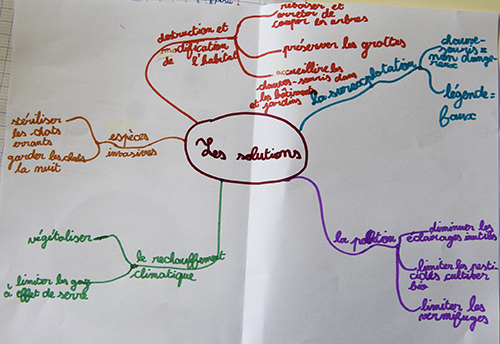 destruction et
modification
de l'habitat
reboiser et
arrêter de
couper les arbres
préserver les grottes
accueillir les
chauves-souris dans
les bâtiments
et jardins
la surexploitation
chauve-
souris =
non dange-
reux
légende =
faux
Les solutions
espèces
invasives
stériliser
les chats
errants
garder les chats
la nuit
le réchauffement
climatique
végétaliser
limiter les gaz
à effet de serre
la pollution
diminuer les
éclairages inutiles
limiter les pesti-
cides cultiver
bio
limiter les
vermifuges